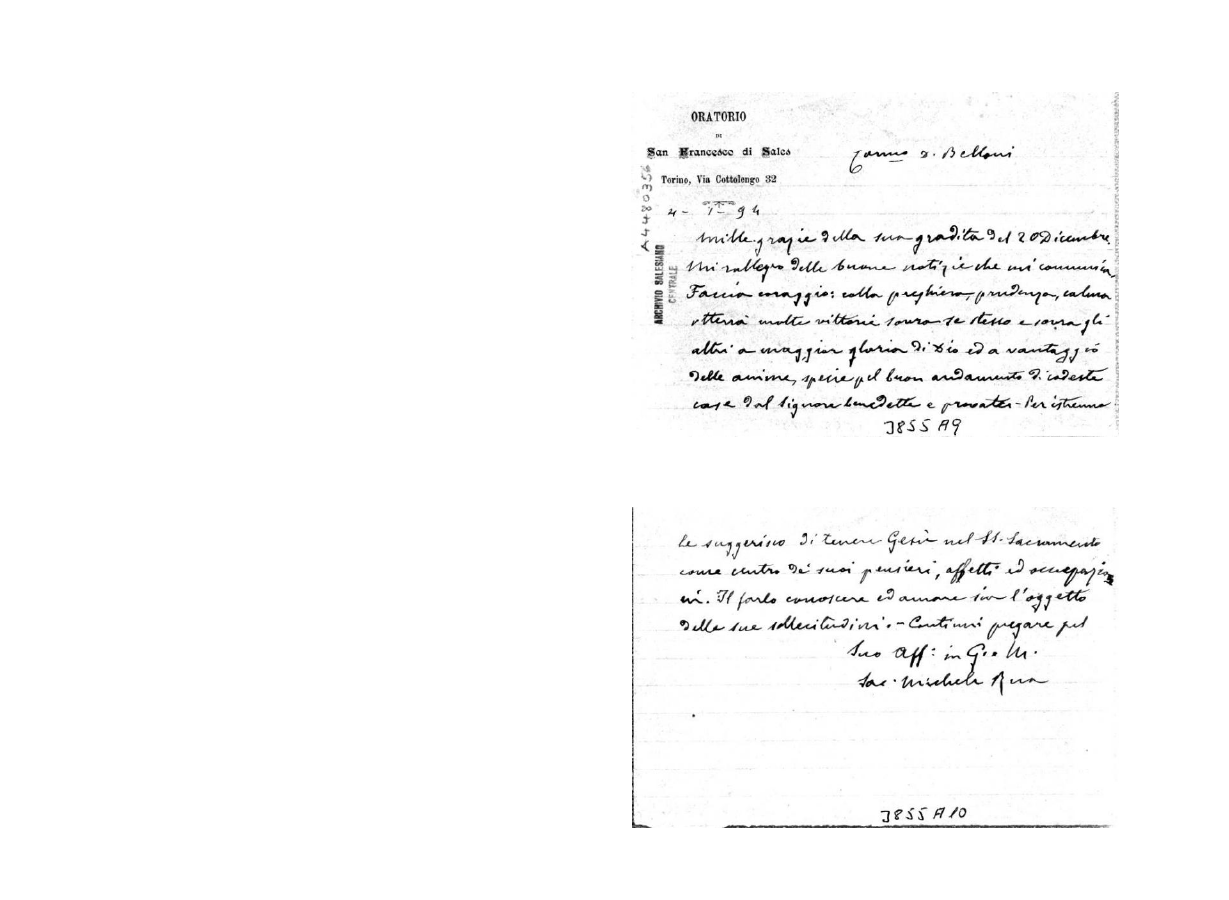 ORATORIO
DI
San Francesco di Sales
Torino, Via Cottolengo 32
Carmo D. Belloni
4 - I - 94
A4480356
ARCHIVIO SALESIANO
CENTRALE
Mille grazie della sua gradita del 20 Dicembre.
Mi rallegro delle buone notizie che mi comunica.
Faccia coraggio: colla preghiera, prudenza, calma
otterrà molte vittorie sovra se stesso e sovra gli
altri a maggior gloria di Dio ed a vantaggio
delle anime, specie pel buon andamento di codeste
case dal Signore benedette e provate - Per istrenna
3855 A9
le suggerisco di tenere Gesù nel SS. Sacramento
come centro de' suoi pensieri, affetti ed occupazio
ni. Il farlo conoscere ed amare sia l'oggetto
delle sue sollecitudini. - Continui pregare pel
Suo Aff: in G. e M.
Sac. Michele Rua
3855 A10